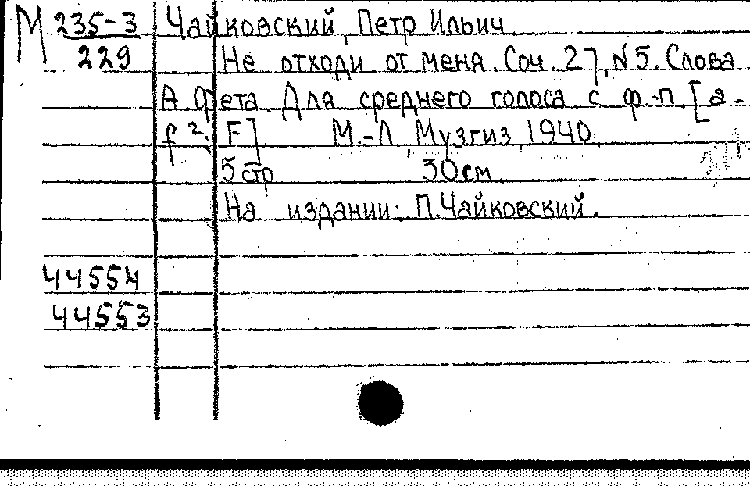 М 235-3 Чайковский, Петр Ильич.
229 Не отходи от меня. Соч. 27, N5. Слова
А. Фета. Для среднего голоса с ф.-п. [a -
f²; F] М.-Л., Музгиз, 1940.
5 стр. 30 см.
На издании: П. Чайковский.
44554
44553